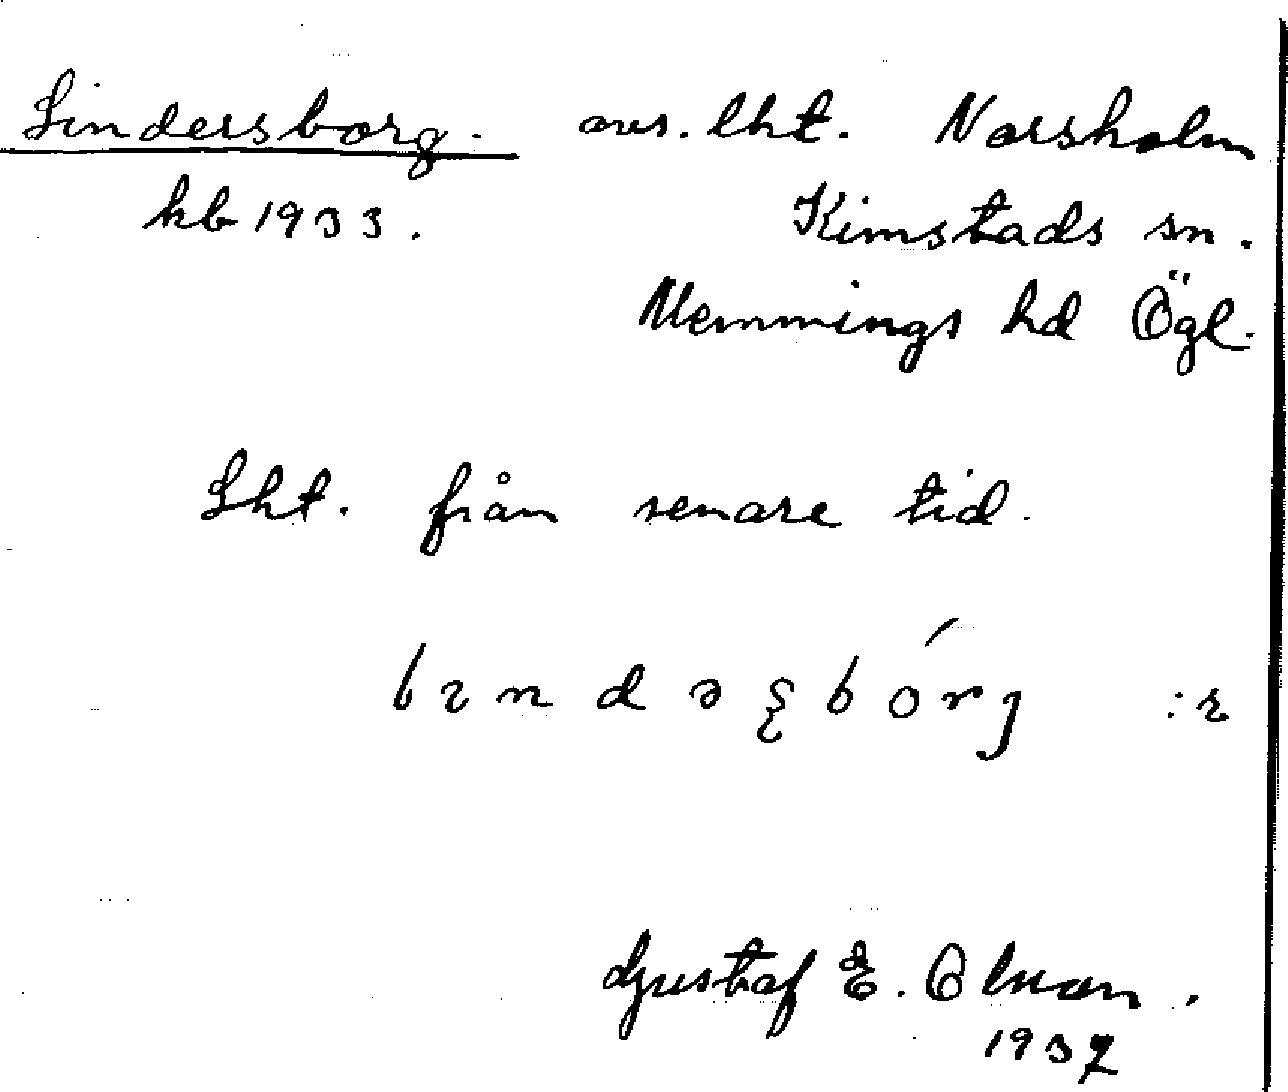 Lindersborg. avs. lht. Norsholm
kb 1933. Kimstads sn.
Memmings hd Ögl.
Lht. från senare tid.
Gustaf E.
1937